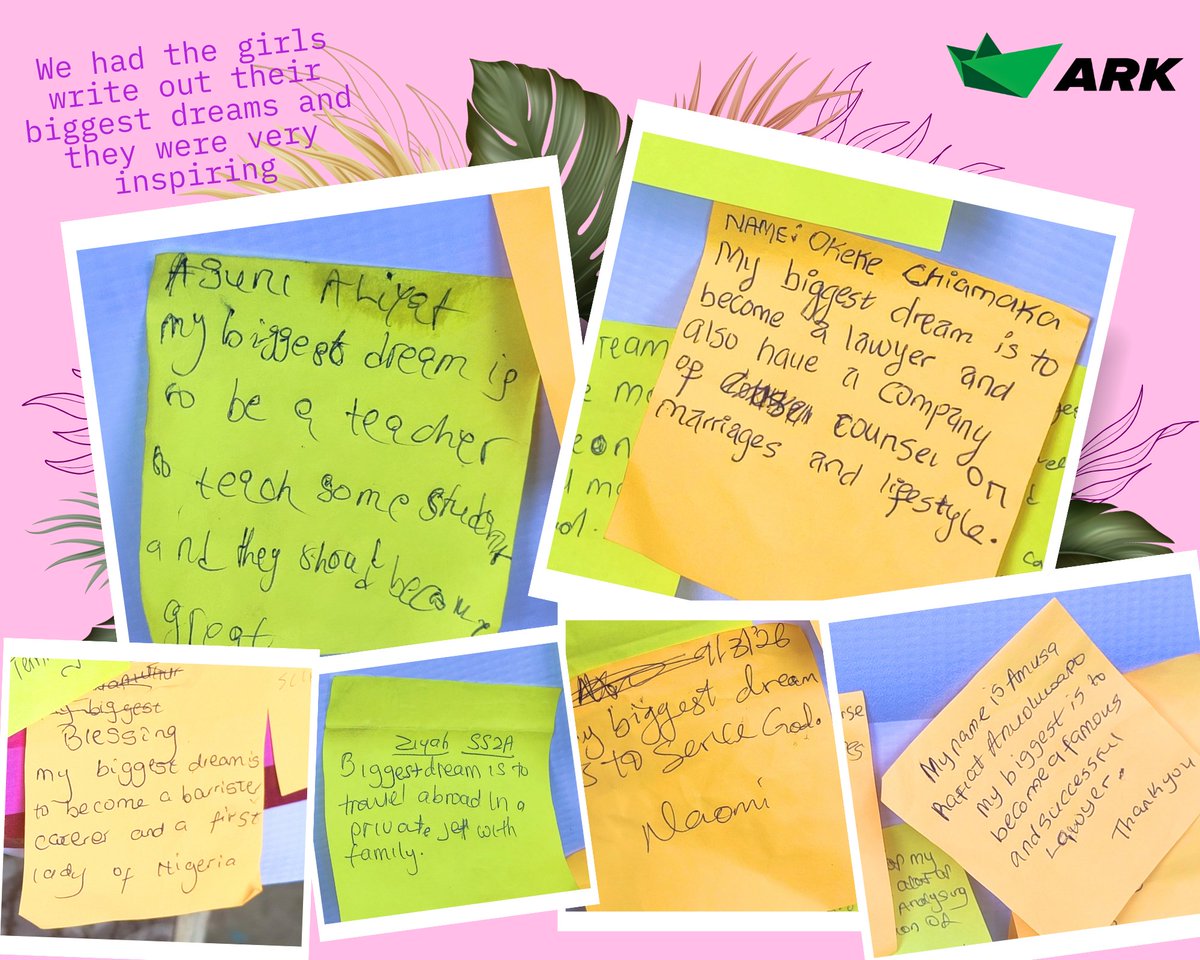 We had the girls
write out their
biggest dreams and
they were very
inspiring
ARK
Asuni Aliyat
my biggest dream is
to be a teacher
to teach some students
and they should become
great
NAME: OKEKE Chiamaka
My biggest dream is to
become a lawyer and
also have a company
of counsel on
marriages and lifestyle.
my biggest
Blessing
my biggest dream is
to become a barrister
career and a first
lady of Nigeria
Ziyah SS2A
Biggest dream is to
travel abroad in a
private jet with
family.
9/3/26
my biggest dream
is to Serice God.
Naomi
My name is Amusa
Rafiat Anuoluwapo
my biggest is to
become a famous
and successful
Lawyer.
Thank you
op my
Analysing